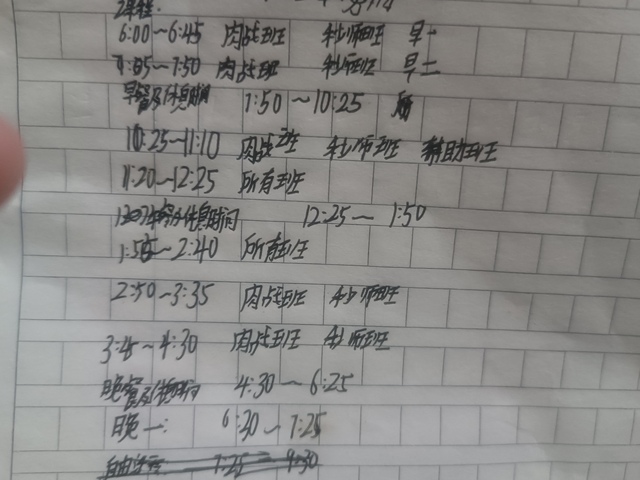 课程:
6:00~6:45 肉战班 科师班 早一
7:05~7:50 肉战班 科师班 早二
早餐及休息时间 7:50~10:25
10:25~11:10 肉战班 科师班 辅助班
11:20~12:25 所有班
午餐及休息时间 12:25~1:50
1:55~2:40 所有班
2:50~3:35 肉战班 科师班
3:45~4:30 肉战班 科师班
晚餐及休息时间 4:30~6:25
晚一: 6:30~7:25
7:25 9:30